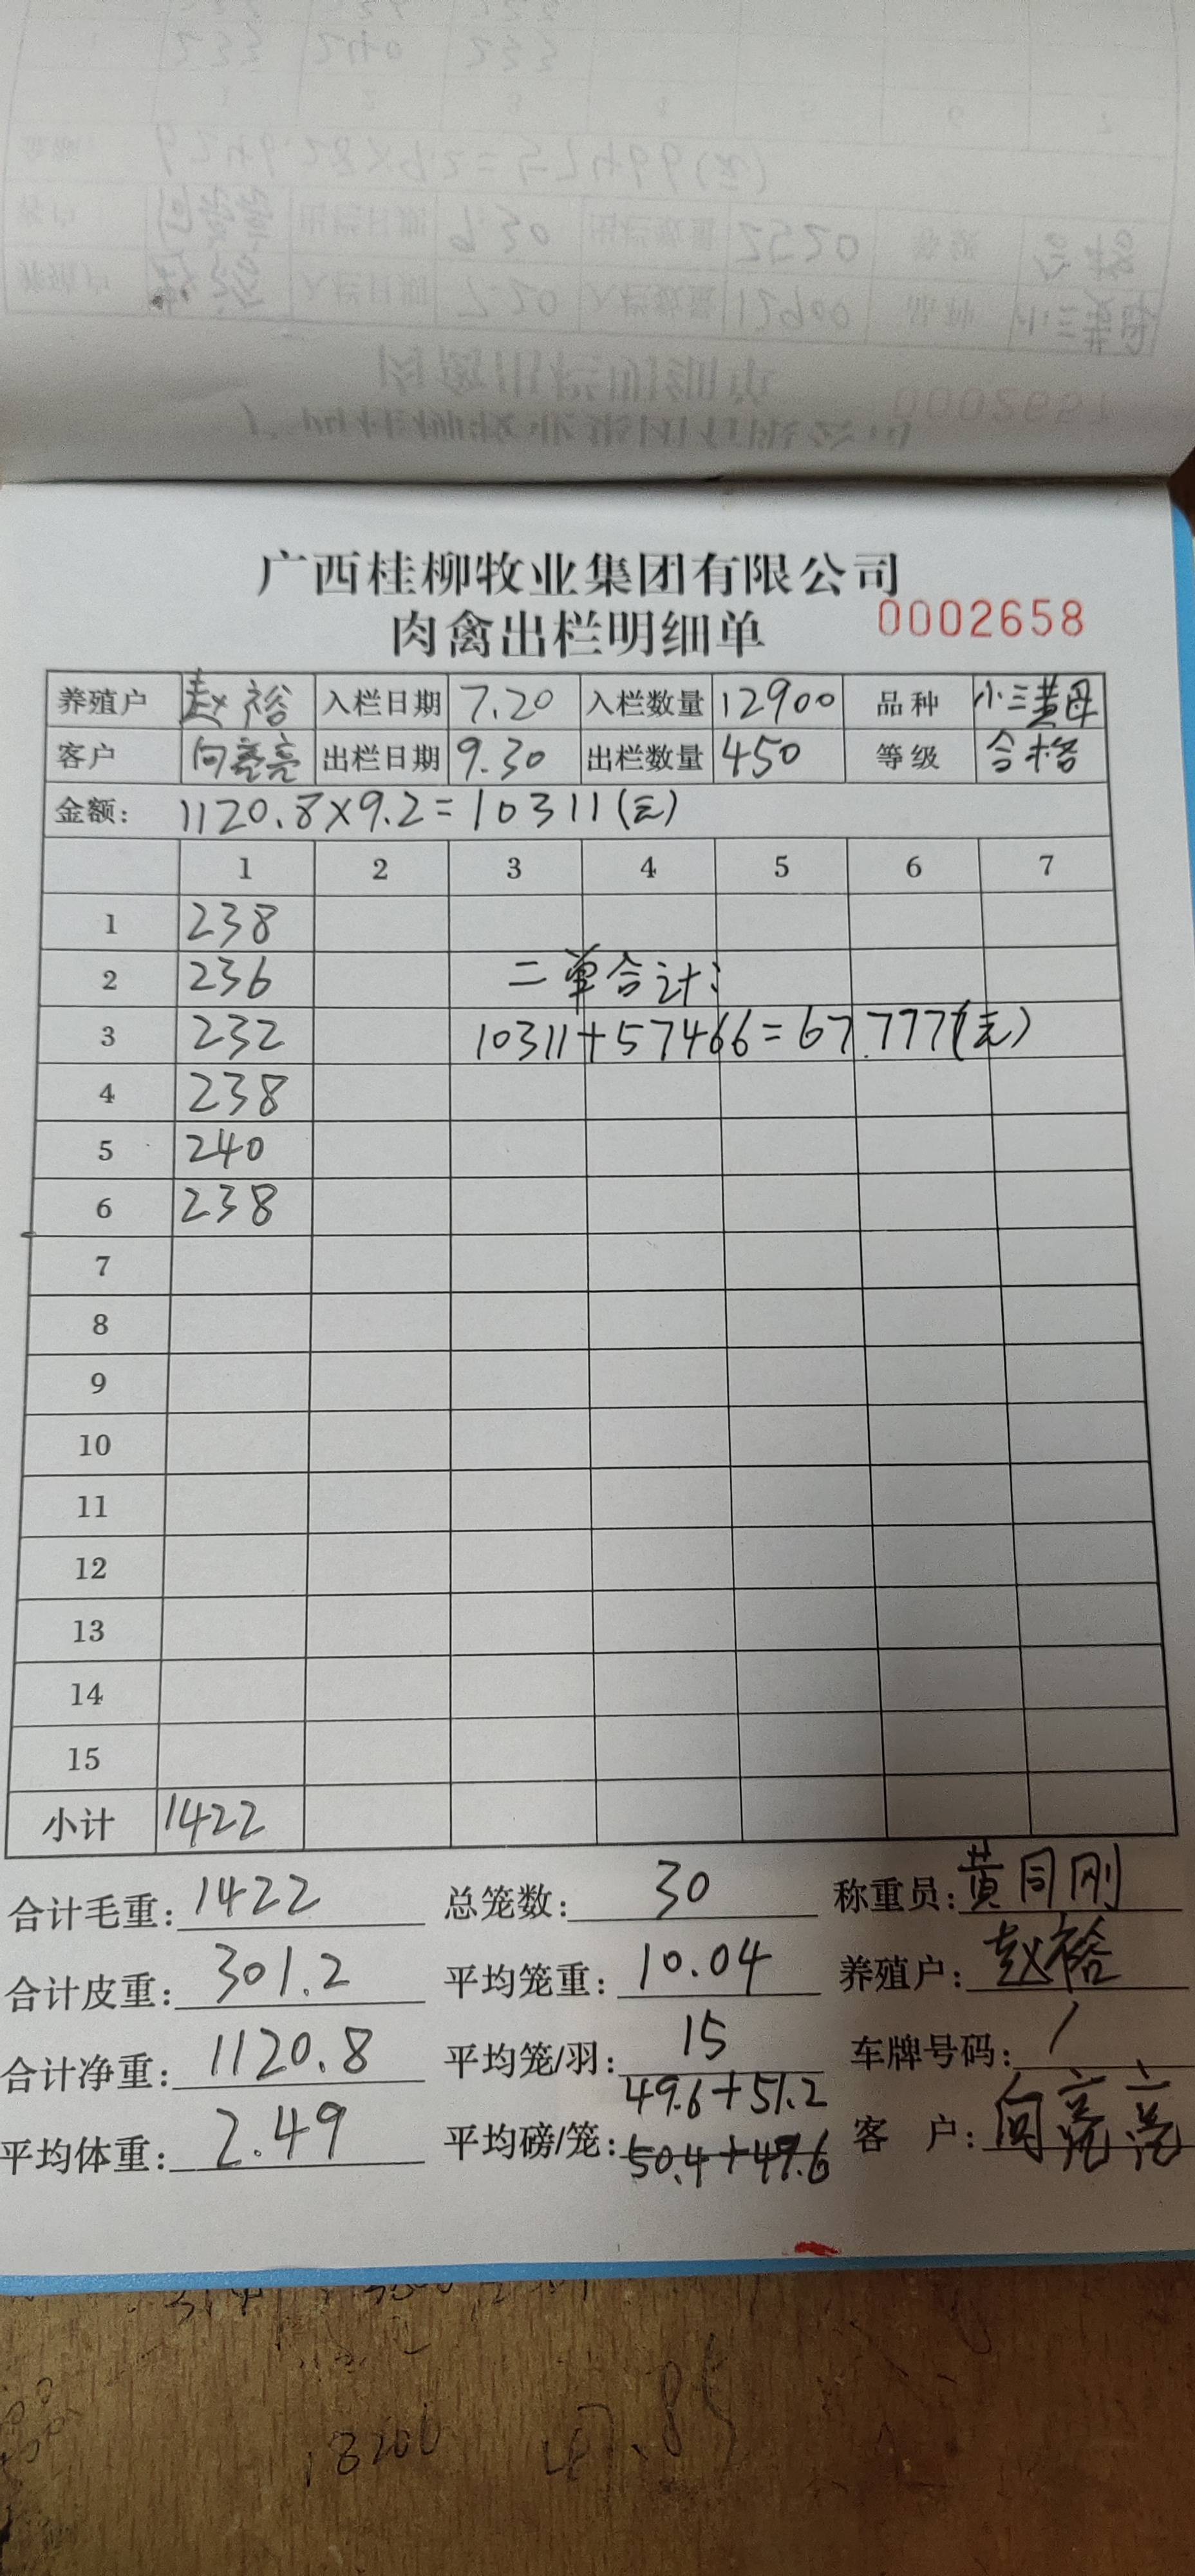 广西桂柳牧业集团有限公司
肉禽出栏明细单 0002658
养殖户 赵裕 入栏日期 7.20 入栏数量 12900 品种 小三黄母
客户 向亮亮 出栏日期 9.30 出栏数量 450 等级 合格
金额: 1120.8×9.2=10311(元)
1 2 3 4 5 6 7
1 238
2 236 二单合计:
3 232 10311+57466=67.777(元)
4 238
5 240
6 238
7
8
9
10
11
12
13
14
15
小计 1422
合计毛重: 1422 总笼数: 30 称重员: 黄同刚
合计皮重: 301.2 平均笼重: 10.04 养殖户: 赵裕
合计净重: 1120.8 平均笼/羽: 15 车牌号码: /
49.6+51.2
平均体重: 2.49 平均磅/笼: 50.4+49.6 客 户: 向亮亮
18200